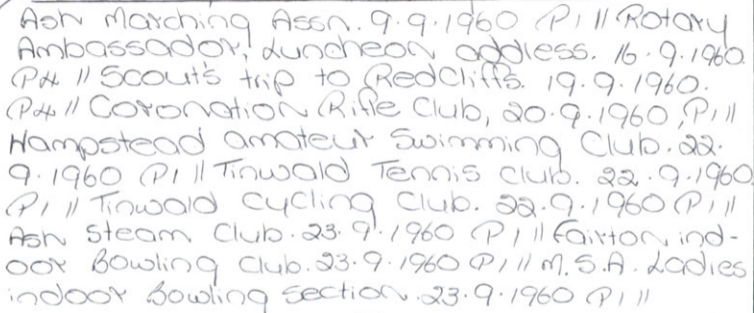 Ash Marching Assn. 9.9.1960 P1 // Rotary
Ambassador, Luncheon address. 16.9.1960.
P4 // Scout's trip to Redcliffs. 19.9.1960.
P4 // Coronation Rifle Club, 20.9.1960, P1 //
Hampstead amateur Swimming Club. 22.
9.1960 P1 // Tinwald Tennis club. 22.9.1960
P1 // Tinwald cycling Club. 22.9.1960 P1 //
Ash Steam Club. 23.9.1960 P1 // Fairton ind-
oor Bowling Club. 23.9.1960 P1 // M.S.A. Ladies
indoor Bowling section. 23.9.1960 P1 //